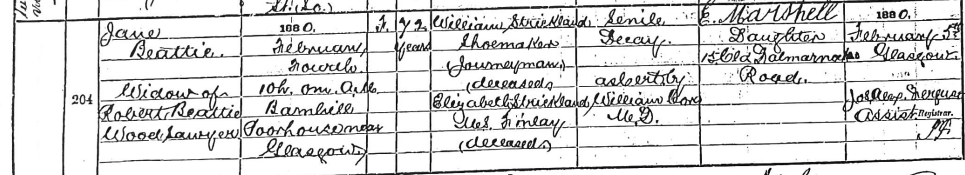 204
Jane
Beattie
Widow of
Robert Beattie
Wood Sawyer
1880.
February
Fourth
10h. 0m. A.M.
Barnhill
Poorhouse near
Glasgow
F.
72
years
William Strickland
Shoemaker
(Journeyman)
(deceased)
Elizabeth Strickland
M.S. Finlay
(deceased)
Senile
Decay
as cert by
William
M.D.
E. Marshell
Daughter
Old Dalmarnock
Road.
1880.
February 5th
Glasgow.
Assist Registrar.